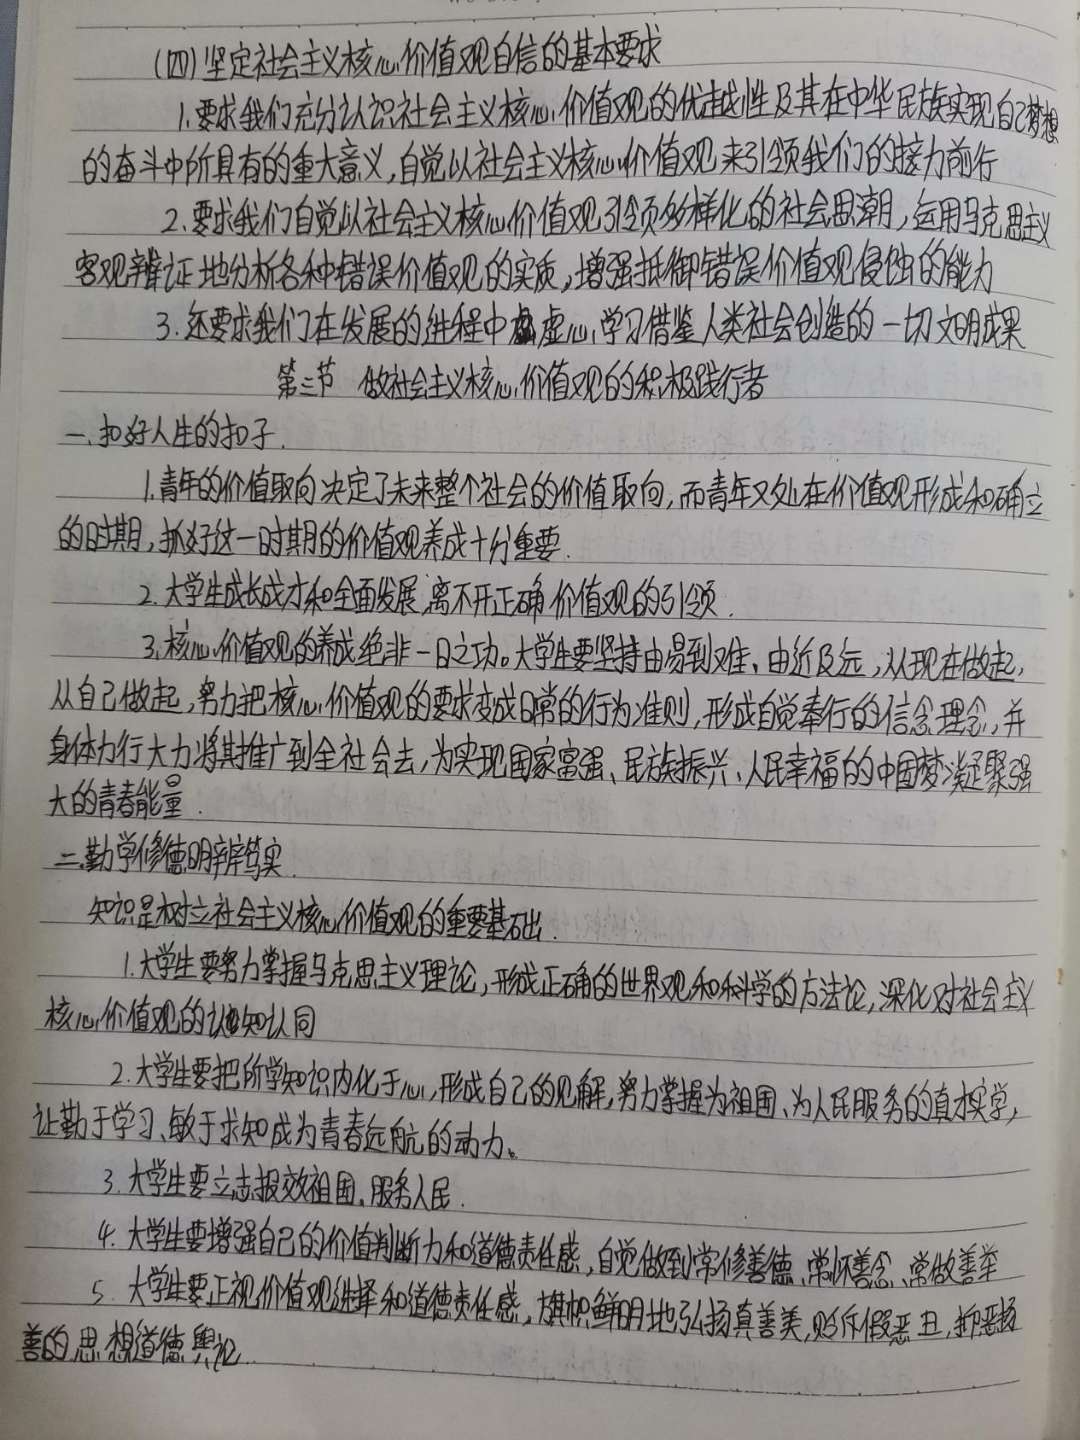 (四)坚定社会主义核心价值观自信的基本要求
1.要求我们充分认识社会主义核心价值观的优越性及其在中华民族实现自己梦想
的奋斗中所具有的重大意义,自觉以社会主义核心价值观来引领我们的接力前行
2.要求我们自觉以社会主义核心价值观引领多样化的社会思潮,运用马克思主义
客观辩证地分析各种错误价值观的实质,增强抵御错误价值观侵蚀的能力
3.还要求我们在发展的进程中虚心学习借鉴人类社会创造的一切文明成果
第三节 做社会主义核心价值观的积极践行者
一、扣好人生的扣子.
1.青年的价值取向决定了未来整个社会的价值取向,而青年又处在价值观形成和确立
的时期,抓好这一时期的价值观养成十分重要.
2.大学生成长成才和全面发展,离不开正确价值观的引领.
3.核心价值观的养成绝非一日之功。大学生要坚持由易到难、由近及远,从现在做起,
从自己做起,努力把核心价值观的要求变成日常的行为准则,形成自觉奉行的信念理念,并
身体力行大力将其推广到全社会去,为实现国家富强、民族振兴、人民幸福的中国梦凝聚强
大的青春能量.
二.勤学修德明辨笃实.
知识是树立社会主义核心价值观的重要基础.
1.大学生要努力掌握马克思主义理论,形成正确的世界观和科学的方法论,深化对社会主义
核心价值观的认知认同
2.大学生要把所学知识内化于心,形成自己的见解,努力掌握为祖国、为人民服务的真才实学,
让勤于学习、敏于求知成为青春远航的动力。
3.大学生要立志报效祖国、服务人民.
4.大学生要增强自己的价值判断力和道德责任感,自觉做到常修善德、常怀善念、常做善举
5.大学生要正视价值观选择和道德责任感,旗帜鲜明地弘扬真善美,贬斥假恶丑,抑恶扬
善的思想道德舆论.